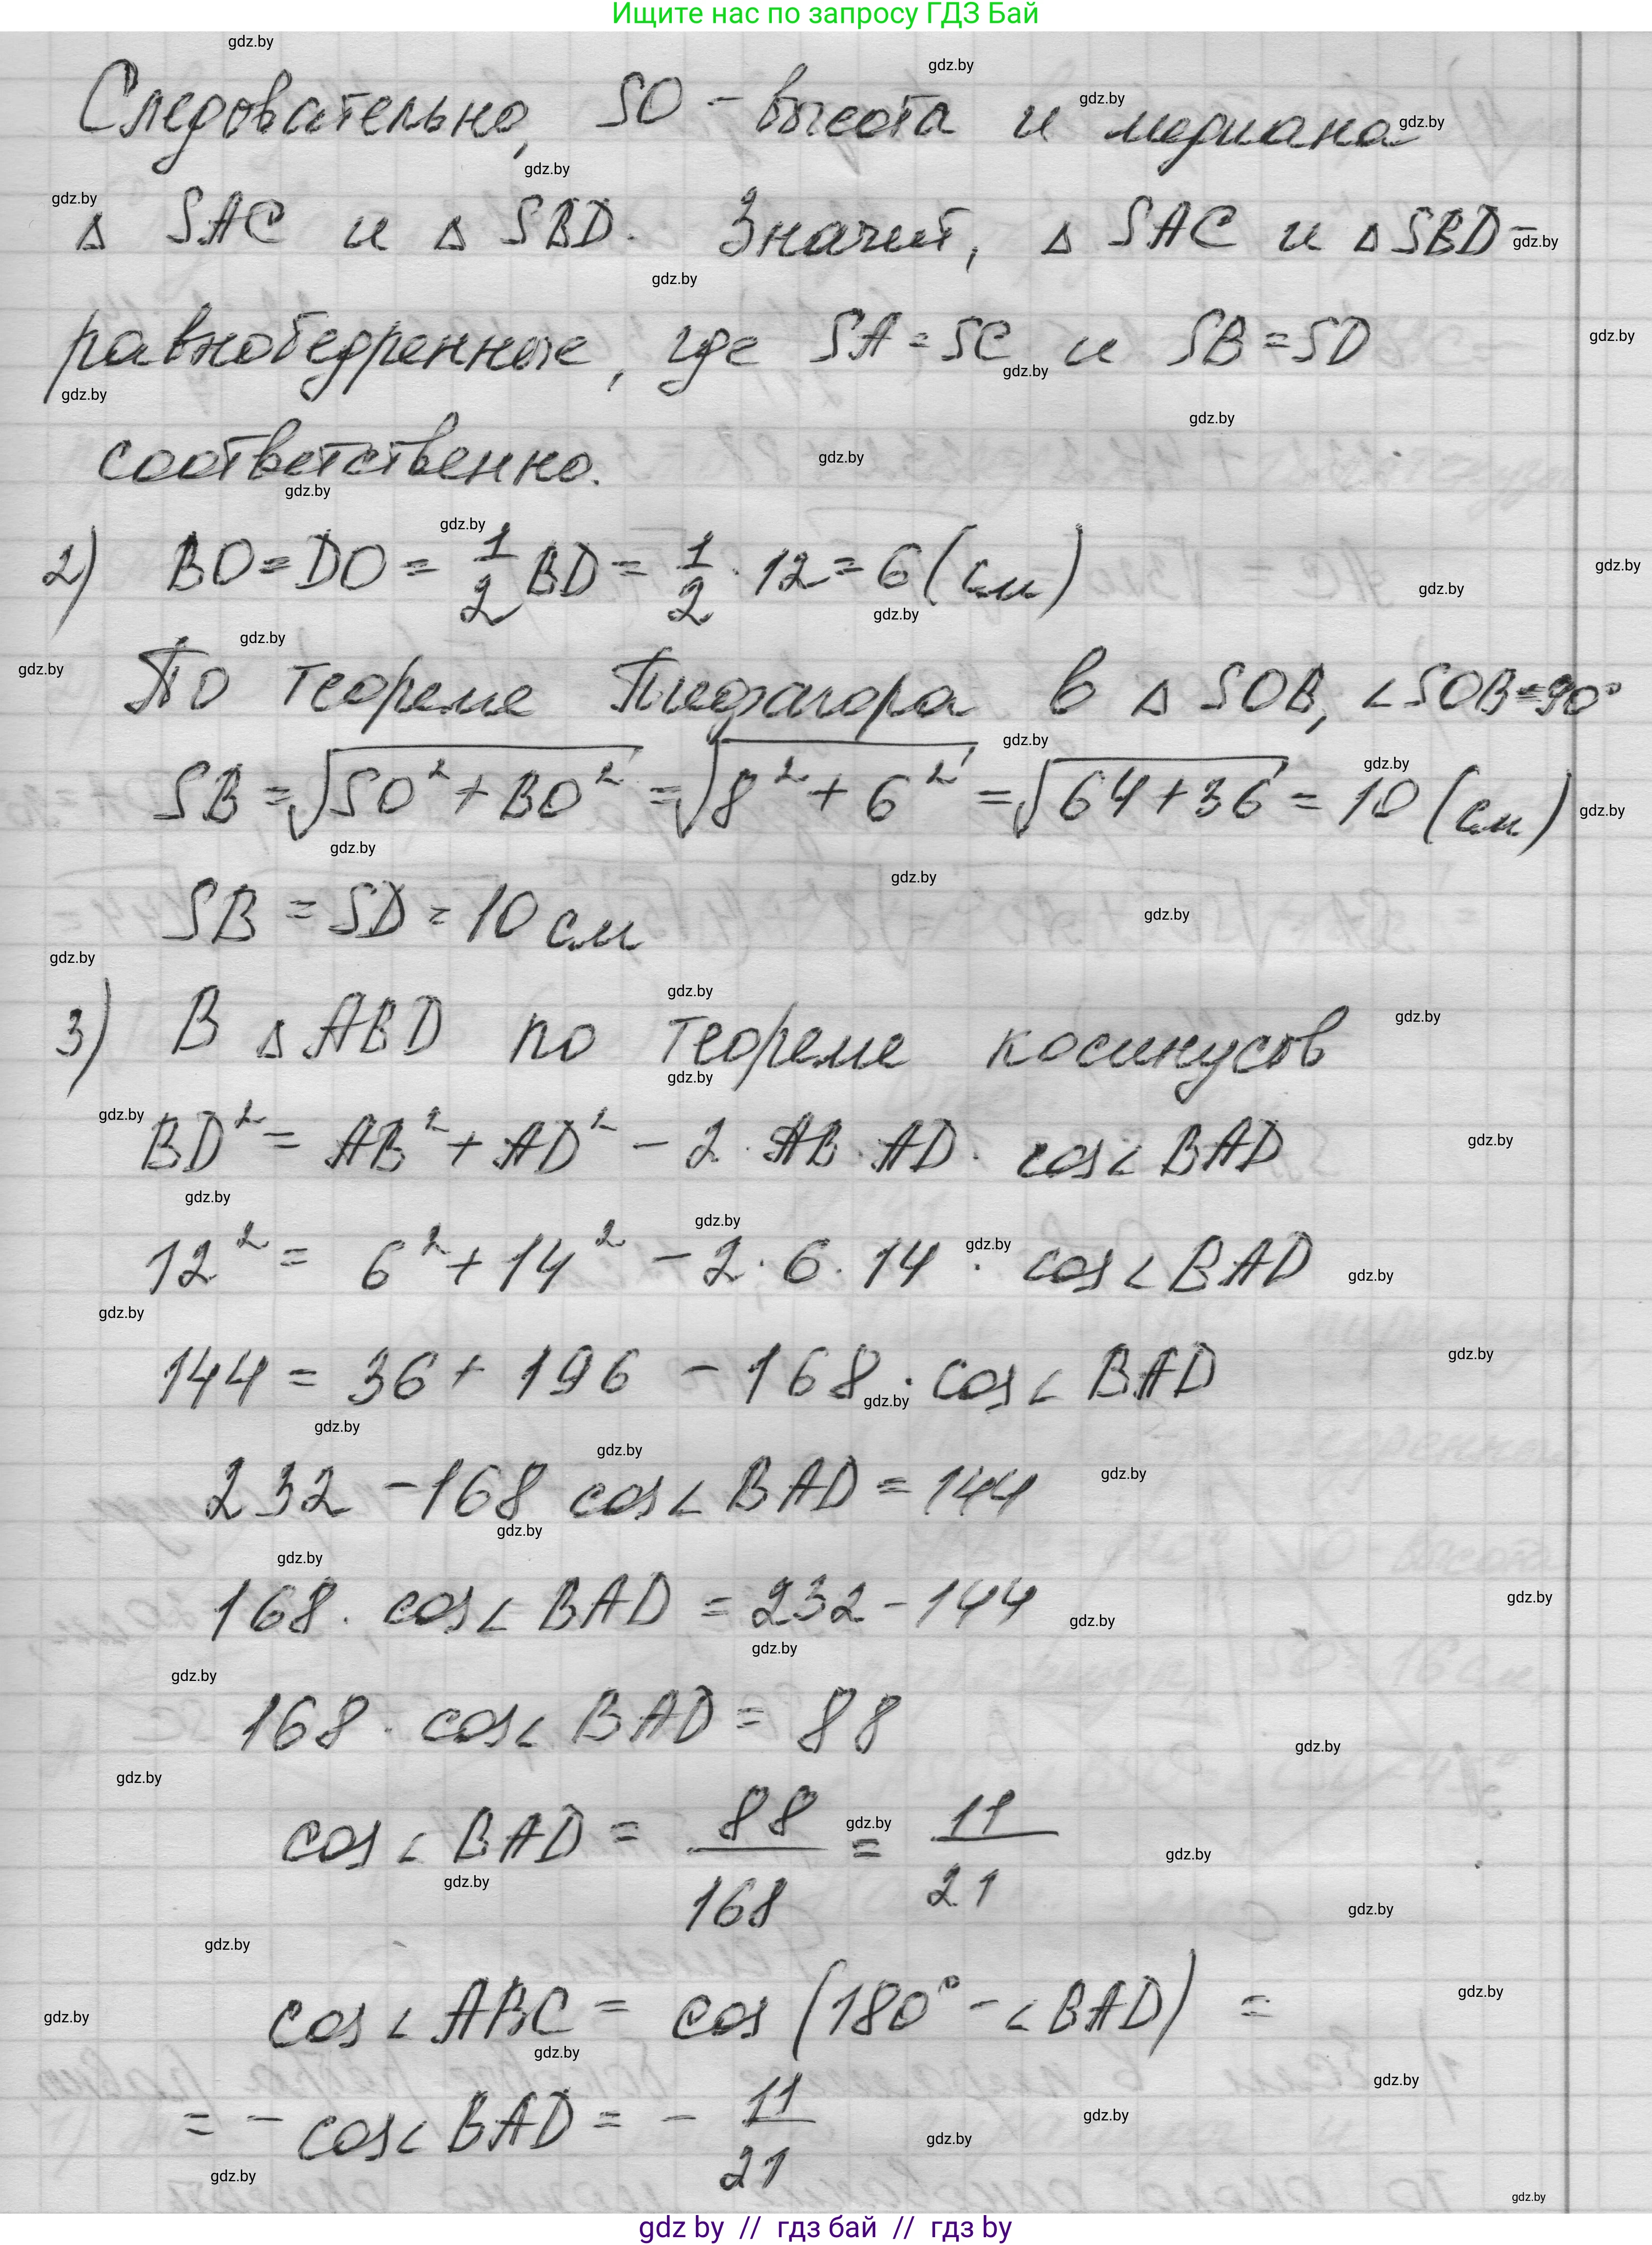 Ищите нас по запросу ГДЗ Бай
Следовательно, SO - высота и медиана
Δ SAC и Δ SBD. Значит, Δ SAC и Δ SBD -
равнобедренные, где SA = SC и SB = SD
соответственно.
2) BO = DO = 1/2 BD = 1/2 · 12 = 6 (см)
По теореме Пифагора в Δ SOB, ∠SOB = 90°
SB = √(SO² + BO²) = √(8² + 6²) = √(64 + 36) = 10 (см)
SB = SD = 10 см
3) В Δ ABD по теореме косинусов
BD² = AB² + AD² - 2 · AB · AD · cos∠ BAD
12² = 6² + 14² - 2 · 6 · 14 · cos∠ BAD
144 = 36 + 196 - 168 · cos∠ BAD
232 - 168 cos∠ BAD = 144
168 · cos∠ BAD = 232 - 144
168 · cos∠ BAD = 88
cos∠ BAD = 88/168 = 11/21
cos∠ ABC = cos (180° - ∠BAD) =
= - cos∠ BAD = - 11/21
gdz by // гдз бай // гдз by